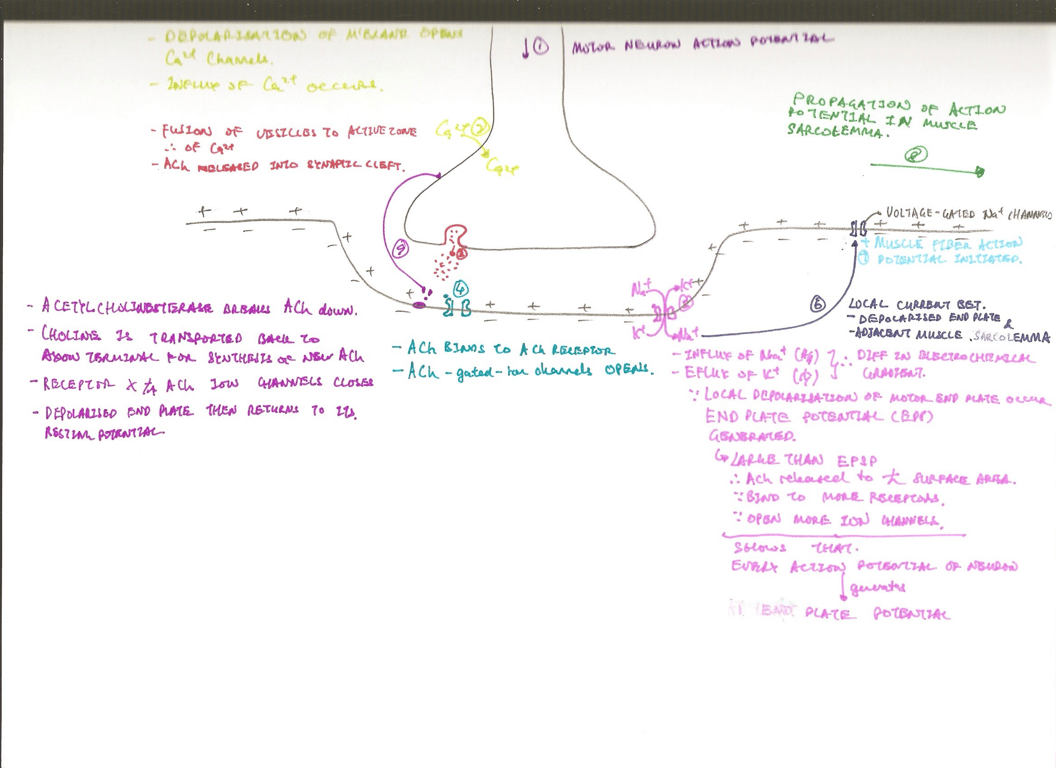 - DEPOLARISATION OF M'BRANE OPENS
Ca²⁺ Channels.
- INFLUX OF Ca²⁺ OCCURS.
↓ ① MOTOR NEURON ACTION POTENTIAL
PROPAGATION OF ACTION
POTENTIAL IN MUSCLE
SARCOLEMMA.
⑧
- FUSION OF VESICLES TO ACTIVE ZONE
∴ OF Ca²⁺
- ACh RELEASED INTO SYNAPTIC CLEFT.
Ca²⁺ ②
Ca²⁺
③
⑨
④
VOLTAGE-GATED Na⁺ CHANNELS
+ MUSCLE FIBER ACTION
⑦ POTENTIAL INITIATED.
Na⁺ K⁺
⑤
K⁺ Na⁺
⑥
LOCAL CURRENT BET.
- DEPOLARISED END PLATE &
- ADJACENT MUSCLE SARCOLEMMA
- ACETYLCHOLINESTERASE BREAKS ACh down.
- CHOLINE IS TRANSPORTED BACK TO
AXON TERMINAL FOR SYNTHESIS OF NEW ACh
- RECEPTOR X ACh ION CHANNELS CLOSES
- DEPOLARISED END PLATE THEN RETURNS TO ITS
RESTING POTENTIAL
- ACh BINDS TO ACh RECEPTOR
- ACh-gated-ion channels OPENS.
- INFLUX OF Na⁺ ∴ DIFF IN ELECTROCHEMICAL
- EFLUX OF K⁺ GRADIENT.
∵ LOCAL DEPOLARISATION OF MOTOR END PLATE OCCUR
END PLATE POTENTIAL (EPP)
GENERATED.
↳ LARGE THAN EPSP
∴ ACh released to 大 SURFACE AREA.
∵ BIND TO MORE RECEPTORS.
∵ OPEN MORE ION CHANNELS.
SHOWS THAT.
EVERY ACTION POTENTIAL OF NEURON
↓ generates
END PLATE POTENTIAL